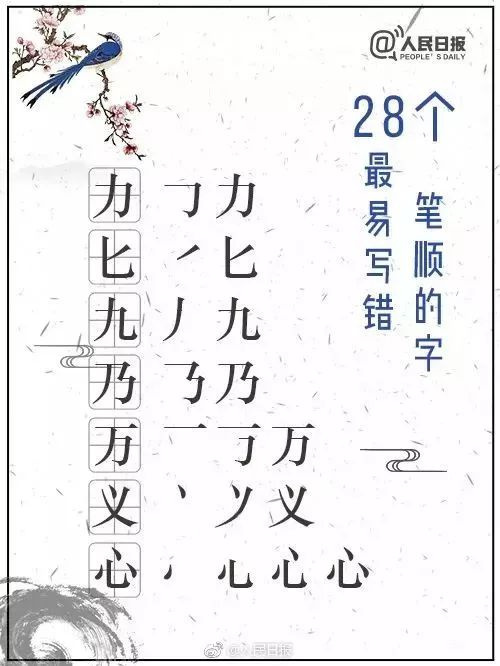 @人民日报
PEOPLE'S DAILY
28个
最易写错
笔顺的字
力 ㇆ 力
匕 ㇒ 匕
九 丿 九
乃 ㇡ 乃
万 一 万
义 丶 义
心 心 心
@人民日报